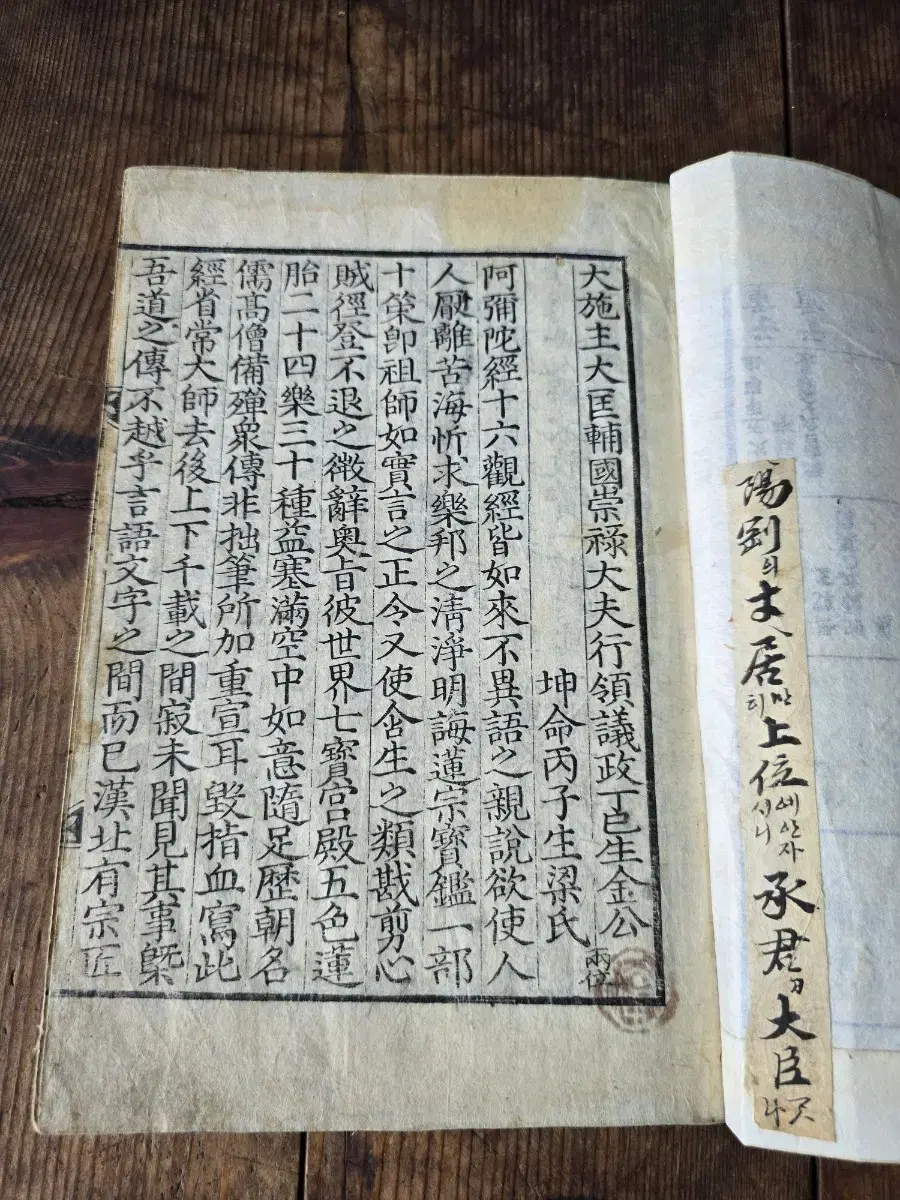 陽劉의
居
上位에안자시니
承君
大臣
大施主大匡輔國崇祿大夫行領議政丁巳生金公兩位
坤命丙子生梁氏
阿彌陀經十六觀經皆如來不異語之親說欲使人
人厭離苦海忻求樂邦之淸淨明誨蓮宗寶鑑一部
十策卽祖師如實言之正令又使含生之類戡剪心
賊徑登不退之徵辭奧旨彼世界七寶宮殿五色蓮
胎二十四樂三十種益塞滿空中如意隨足歷朝名
儒高僧備殫衆傳非拙筆所加重宣耳毀指血寫此
經省常大師去後上下千載之間寂未聞見其事槩
吾道之傳不越乎言語文字之間而已漢址有宗匠